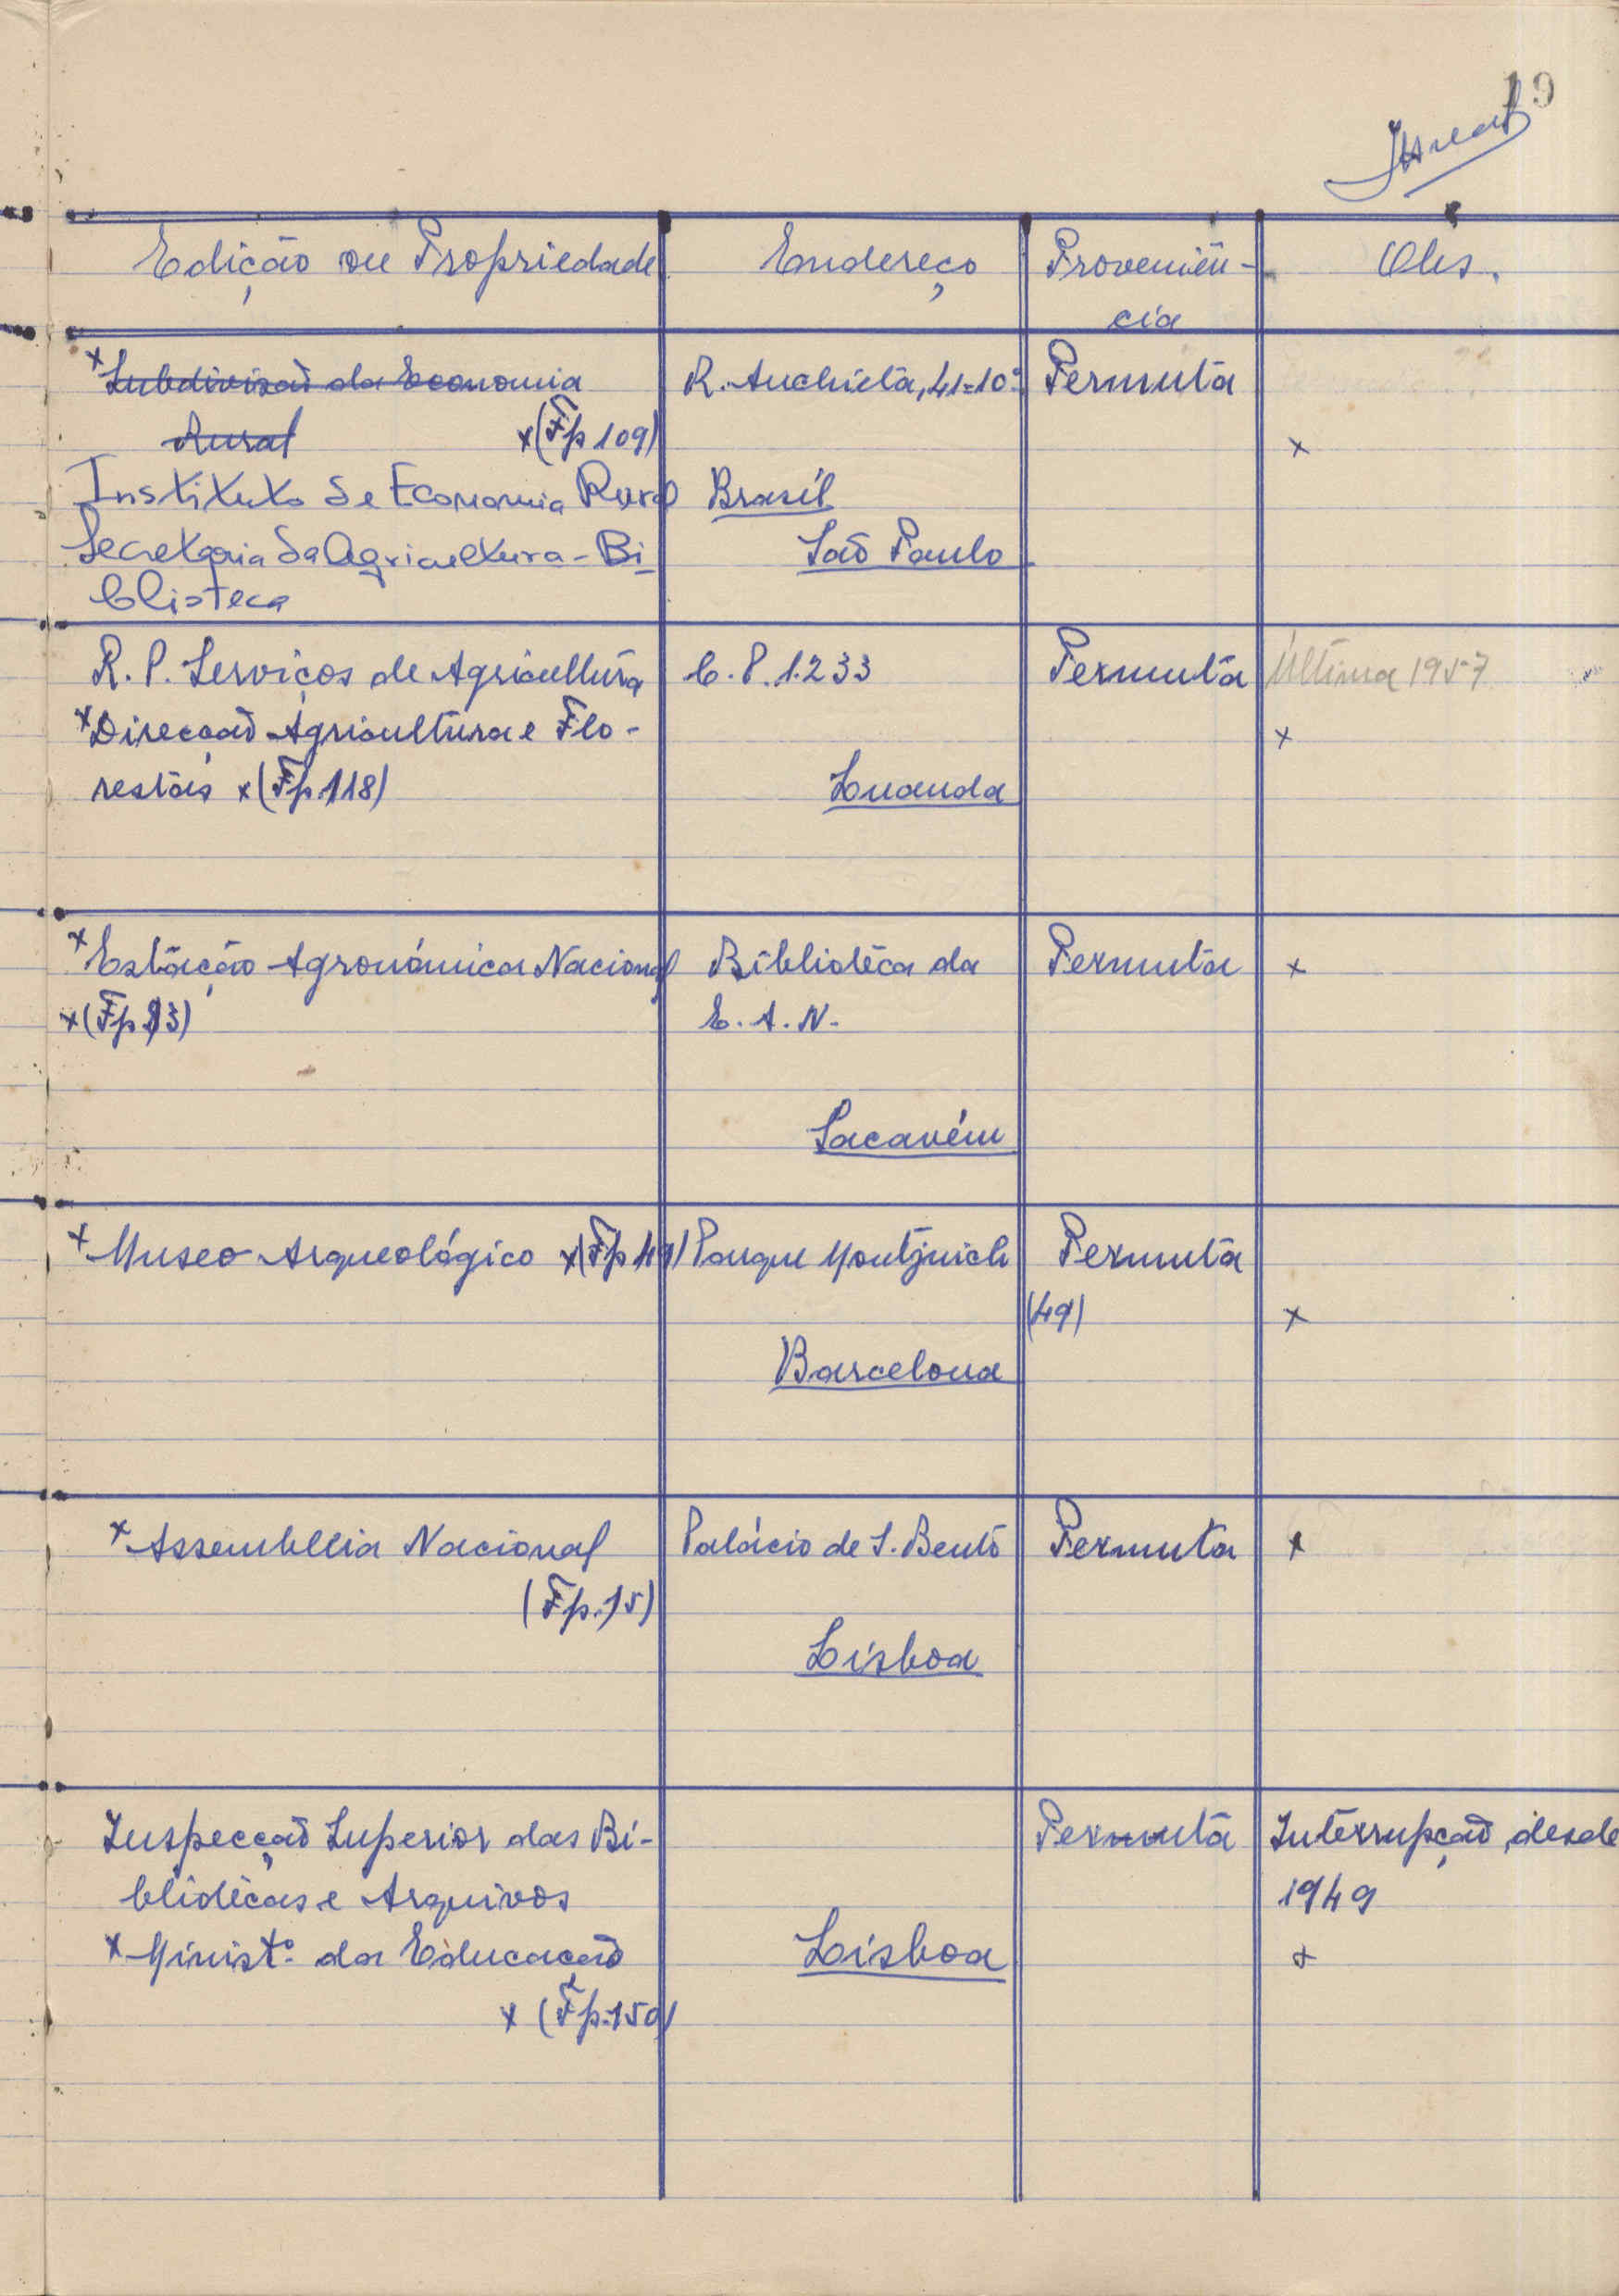 19
Edição ou Propriedade Endereço Proveniên-
cia Obs.
x Subdivisão da Economia
Rural x (Fp 109)
Instituto de Economia Rural
Secretaria da Agricultura - Bi
blioteca
R. Anchieta, 41-10º
Brasil
São Paulo
Permuta
x
R. P. Serviços de Agricultura
x Direcção Agricultura e Flo-
restais x (Fp 118)
C. P. 1.233
Luanda
Permuta
Última 1957
x
x Estação Agronómica Nacional
x (Fp 93)
Biblioteca da
E. A. N.
Sacavém
Permuta
x
x Museo Arqueológico x (Fp 149)
Parque Montjuich
Barcelona
Permuta
(49)
x
x Assembleia Nacional
(Fp. 15)
Palácio de S. Bento
Lisboa
Permuta
x
Inspecção Superior das Bi-
bliotecas e Arquivos
x Minist.º da Educação
x (Fp. 150)
Lisboa
Permuta
Interrupção desde
1949
x